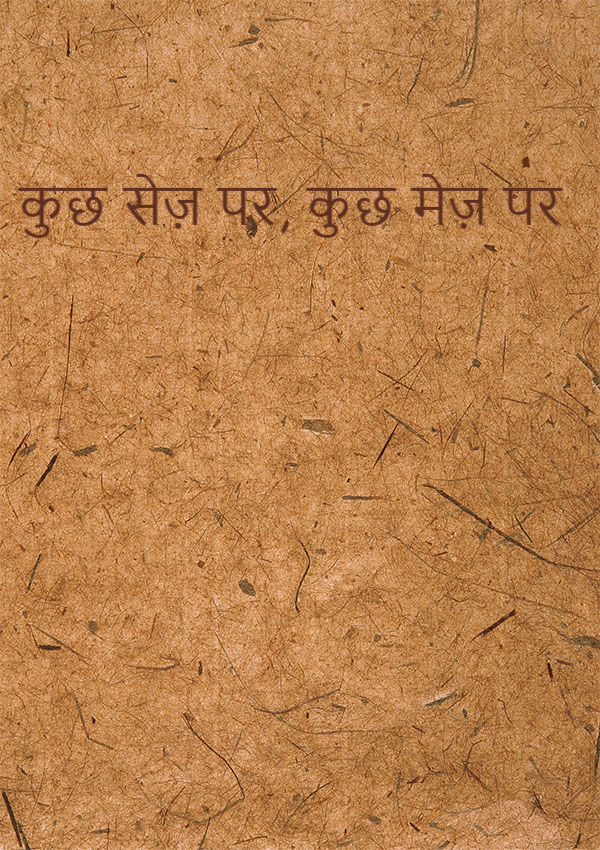 कुछ सेज़ पर, कुछ मेज़ पर